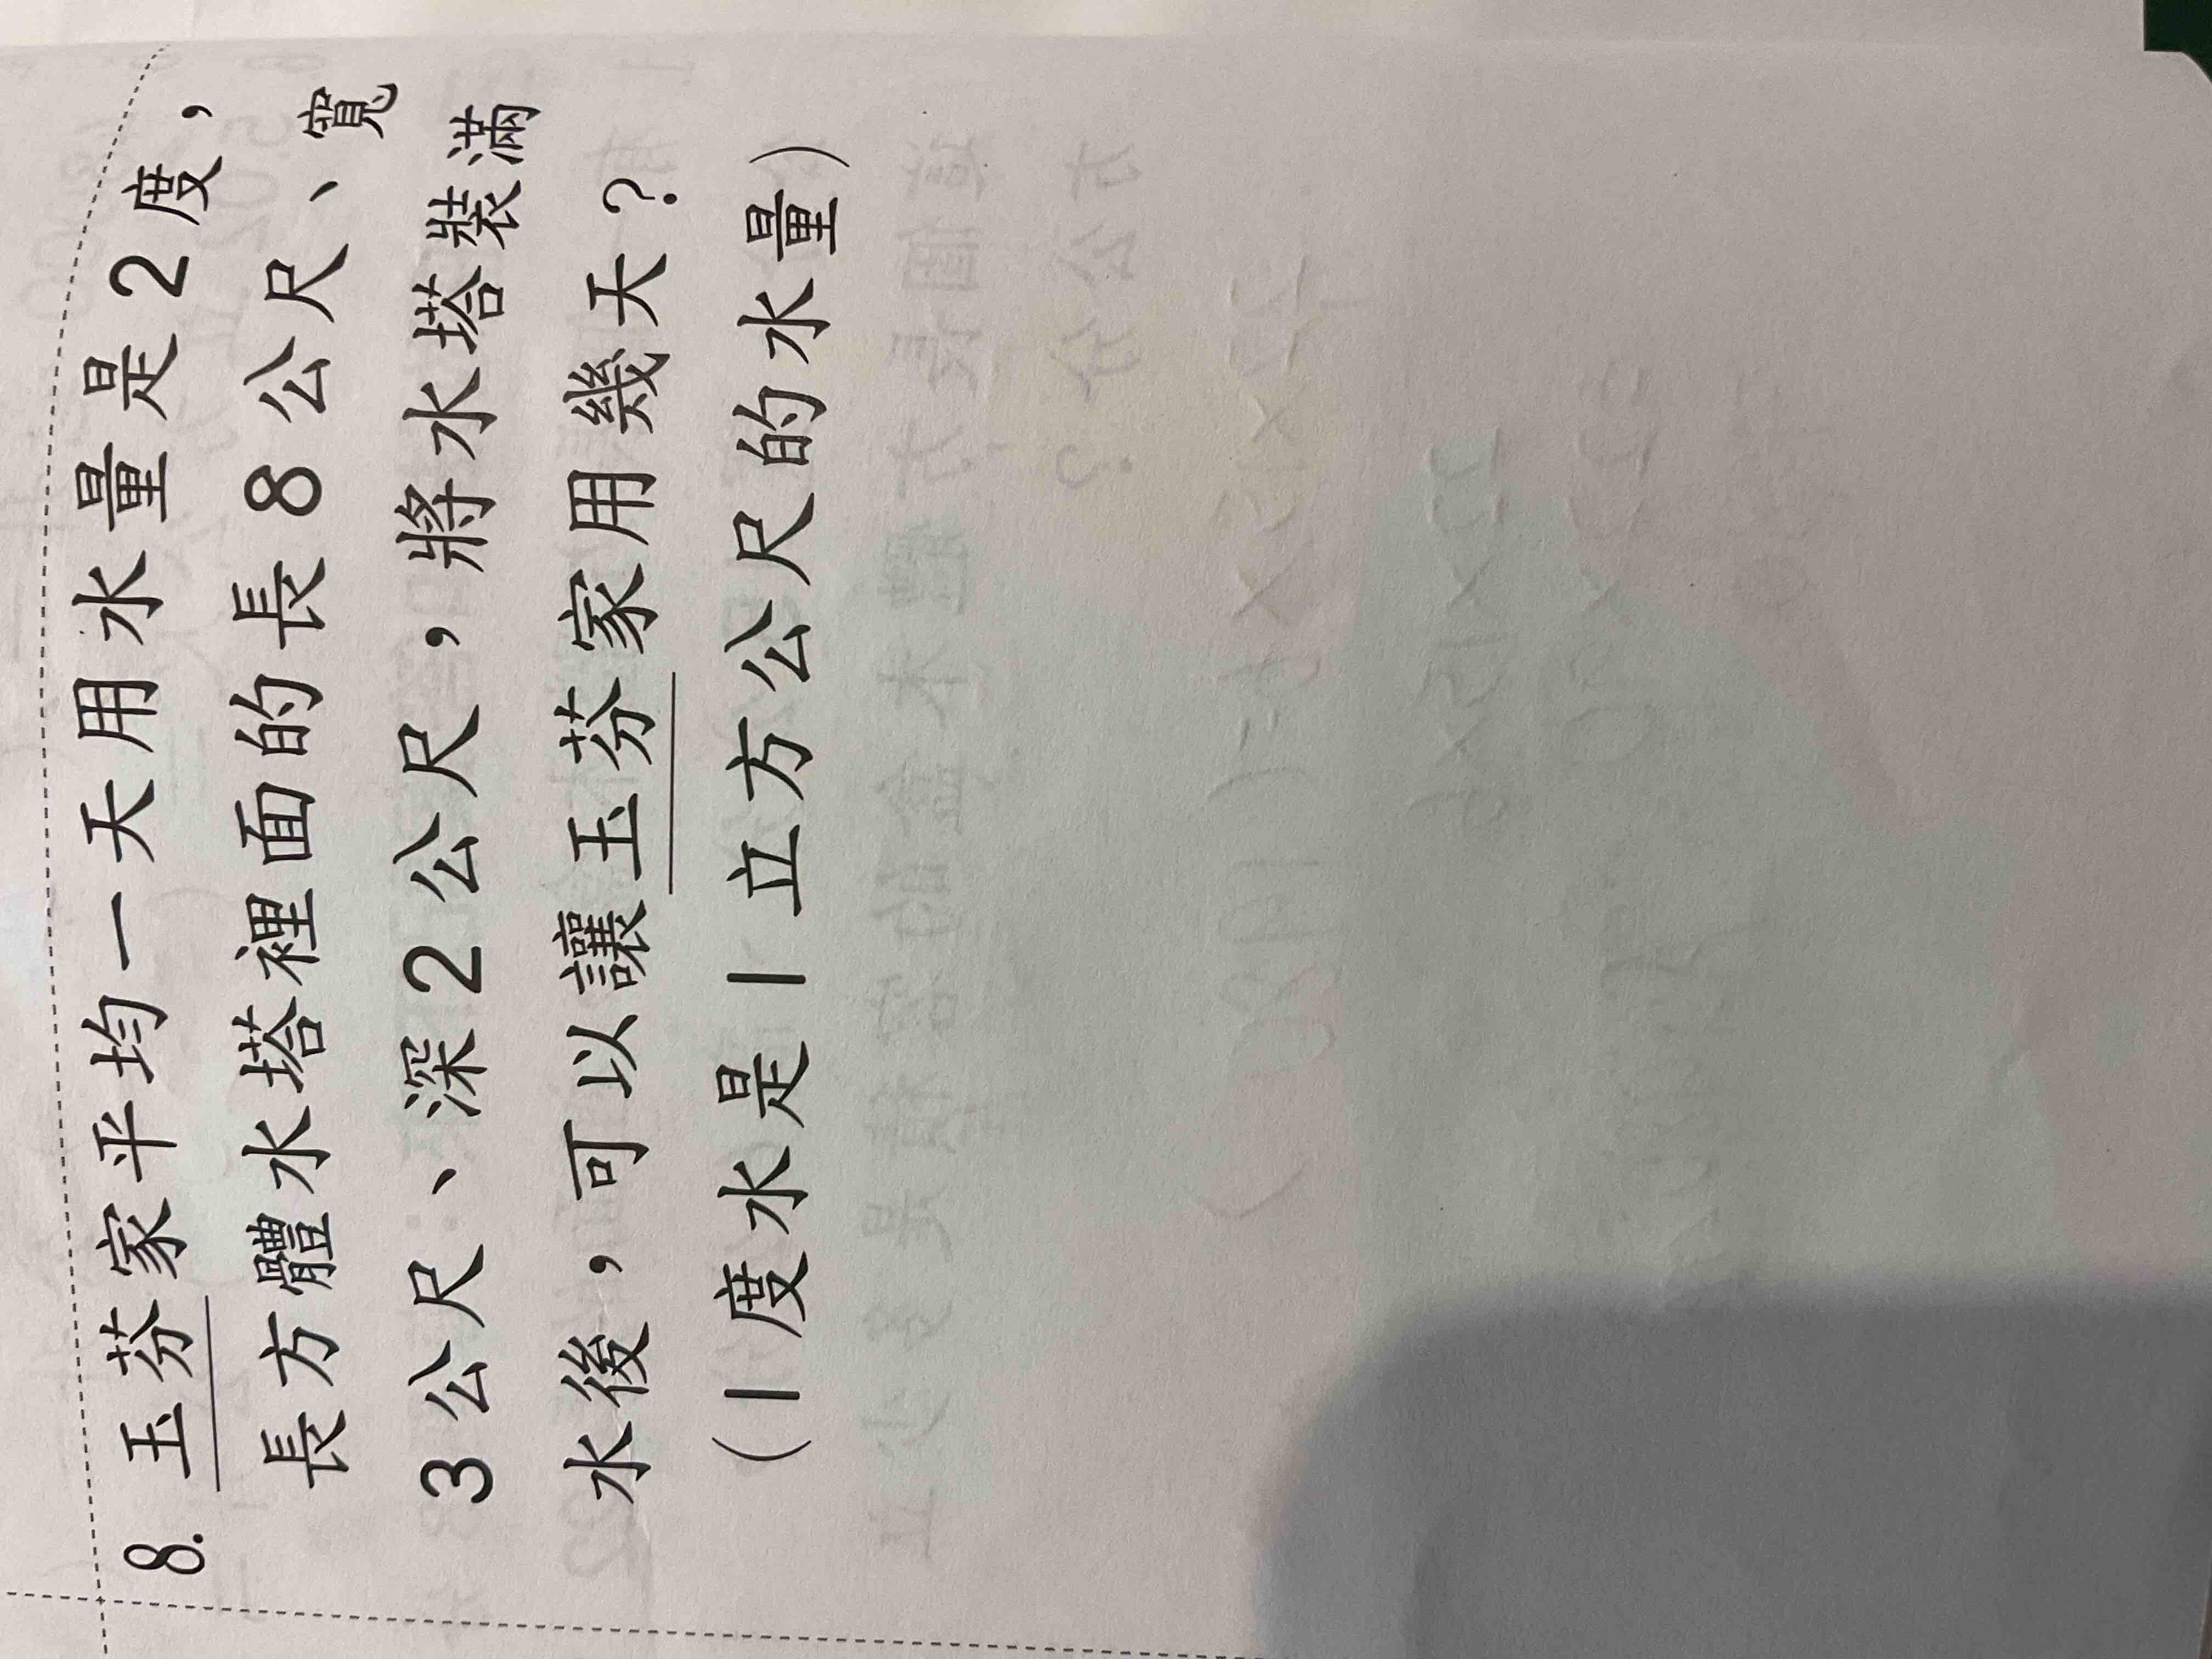 8. 玉芬家平均一天用水量是2度，
長方體水塔裡面的長8公尺、寬
3公尺、深2公尺，將水塔裝滿
水後，可以讓玉芬家用幾天？
（1度水是1立方公尺的水量）